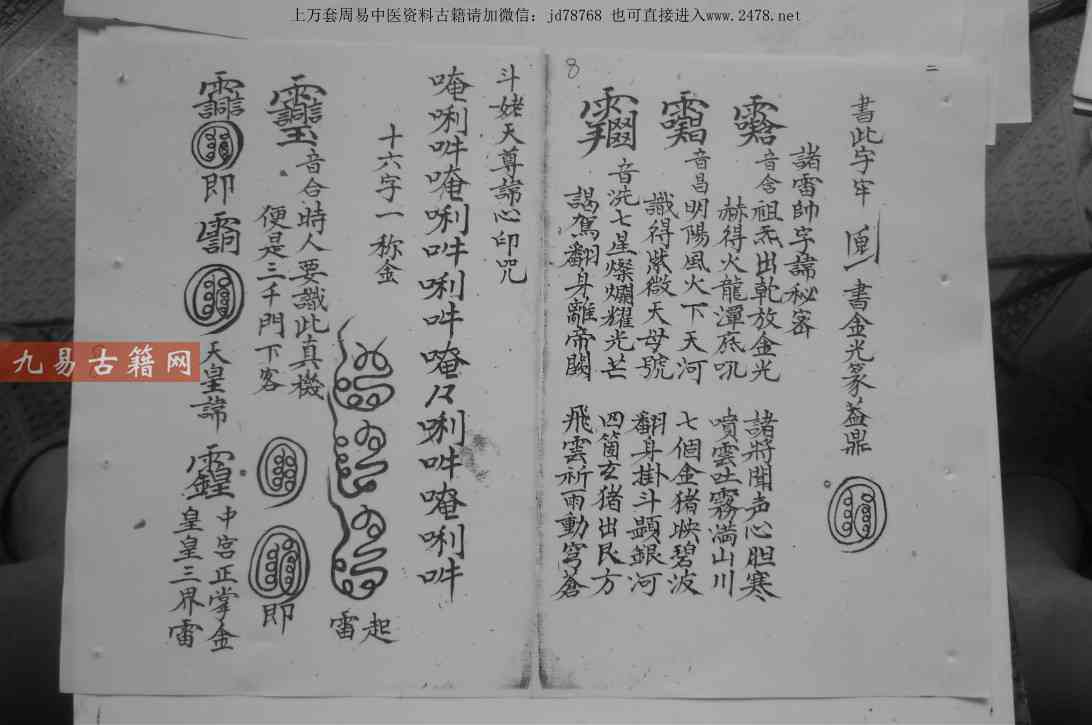 上万套周易中医资料古籍请加微信：jd78768 也可直接进入www.2478.net
九易古籍网
二
8
書此字牢
書金光篆益鼎
諸雷帥字諱秘密
音含祖炁出乾放金光 諸將聞声心胆寒
赫得火龍潭底吼 噴雲吐霧满山川
音昌明陽風火下天河 七個金猪映碧波
識得紫微天母號 翻身掛斗顕銀河
音洗七星燦爛耀光芒 四箇玄猪出艮方
謁駕翻身離帝闕 飛雲祈雨動穹蒼
斗姥天尊諱心印咒
唵唎吽唵唎吽唎吽唵唎吽唵唎吽
十六字一称金
雷起
音合時人要識此真機
便是三千門下客
即
即
天皇諱
中宫正掌金
皇皇三界雷